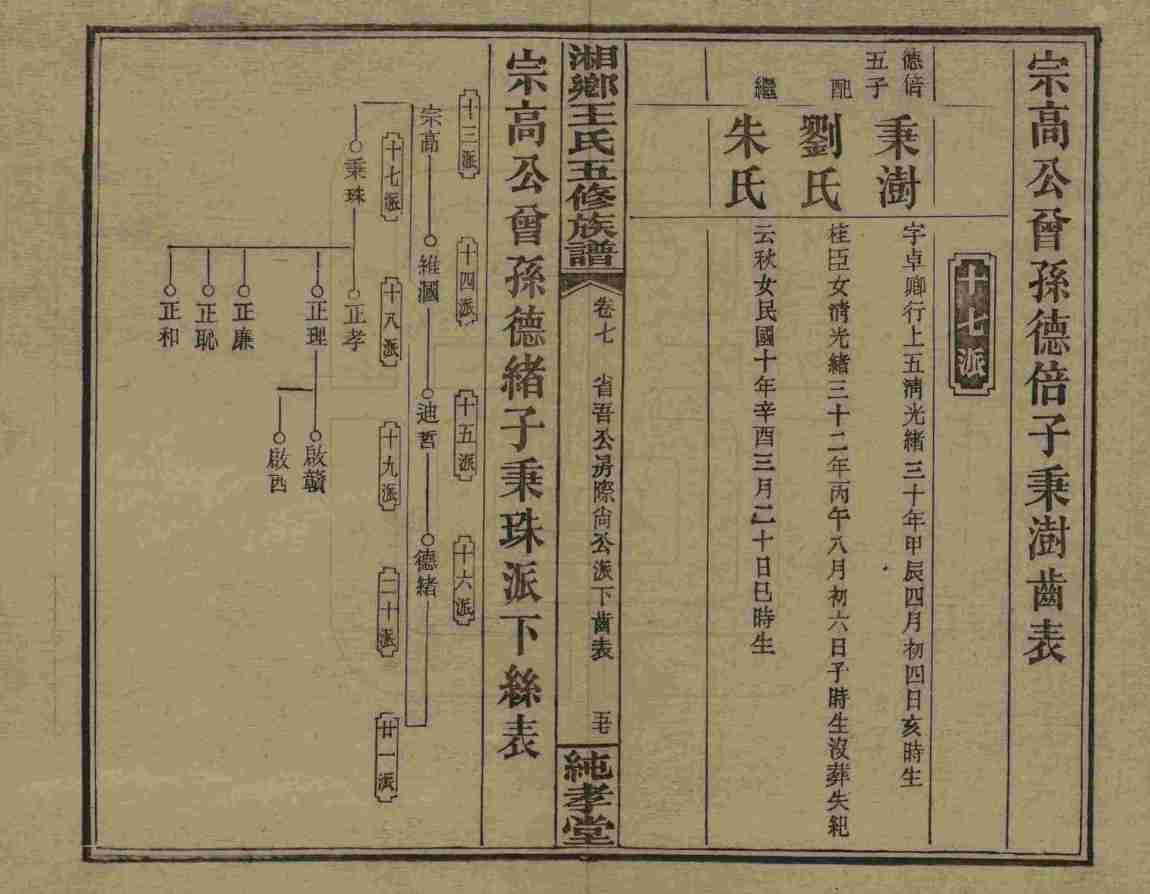 宗高公曾孫德倍子秉澍齒表
十七派
德倍五子
秉澍
字卓卿行上五清光緒三十年甲辰四月初四日亥時生
配
劉氏
桂臣女清光緒三十二年丙午八月初六日子時生沒葬失紀
繼
朱氏
云秋女民國十年辛酉三月二十日巳時生
湘鄉王氏五修族譜
卷七
省吾公房際尚公派下齒表
純孝堂
宗高公曾孫德緒子秉珠派下絲表
十三派
十四派
十五派
十六派
宗高
維國
迪哲
德緒
十七派
十八派
十九派
二十派
廿一派
秉珠
正孝
正理
啟贛
啟西
正廉
正恥
正和